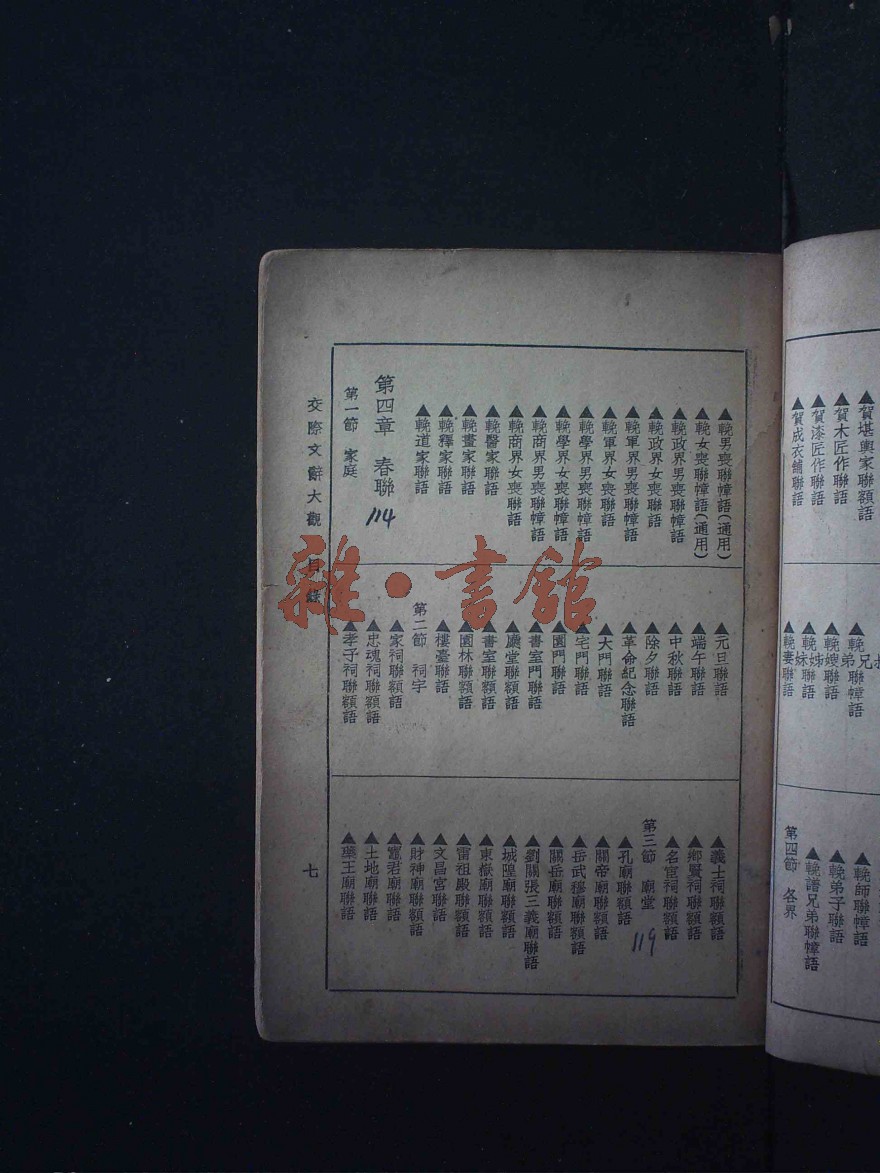 賀堪輿家聯額語
▲賀木匠作聯語
▲賀漆匠作聯語
▲賀成衣鋪聯語
▲輓嫂聯語
▲輓妻聯語
▲輓師聯幛語
▲輓弟子聯語
▲輓譜兄弟聯幛語
第四節 各界
▲輓男喪聯幛語(通用)
▲輓女喪聯幛語(通用)
▲輓政界男喪聯幛語
▲輓政界女喪聯語
▲輓軍界男喪聯幛語
▲輓軍界女喪聯語
▲輓學界男喪聯幛語
▲輓學界女喪聯幛語
▲輓商界男喪聯幛語
▲輓商界女喪聯語
▲輓醫家聯語
▲輓畫家聯語
▲輓釋家聯語
▲輓道家聯語
第四章 春聯
114
第一節 家庭
▲元旦聯語
▲端午聯語
▲中秋聯語
▲除夕聯語
▲革命紀念聯語
▲大門聯語
▲宅門聯語
▲園門聯語
▲書室門聯語
▲廳堂聯額語
▲書室聯額語
▲園林聯額語
▲樓臺聯額語
第二節 祠宇
▲家祠聯額語
▲忠魂祠聯額語
▲孝子祠聯額語
▲義士祠聯額語
▲鄉賢祠聯額語
▲名宦祠聯額語
第三節 廟堂
119
▲孔廟聯額語
▲關帝廟聯額語
▲岳武穆廟聯額語
▲關岳廟聯額語
▲劉關張三義廟聯語
▲城隍廟聯額語
▲東嶽廟聯額語
▲雷祖殿聯額語
▲文昌宮聯語
▲財神廟聯額語
▲竈君廟聯語
▲土地廟聯額語
▲藥王廟聯語
交際文辭大觀 目錄
七
雜·書館